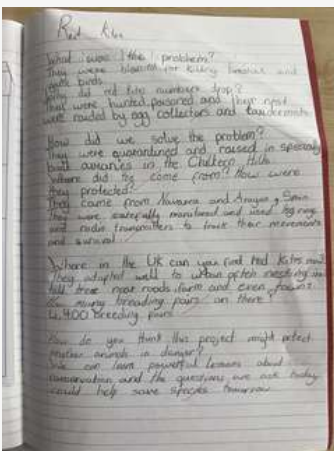 Red Kites
What were the problems?
They were blamed for killing livestock and
game birds.
Why did red kite numbers drop?
They were hunted, poisoned, and their nest
were raided by egg collectors and taxidermists
How did we solve the problem?
They were quarantined and raised in specially
built aviaries in the Chiltern Hills
Where did they come from? How were
they protected?
They came from Navarra and Aragon, Spain
They were carefully monitored and used leg rings
and radio transmitters to track their movements
and survival
Where in the UK can you find Red Kites
They adapted well to urban often nesting in
tall trees near roads, farm and even towns
How many breeding pairs are there?
4,400 breeding pairs
How do you think this project might protect
another animals in danger?
We can learn powerful lessons about
conservation and the questions we ask today
could help save species tomorrow